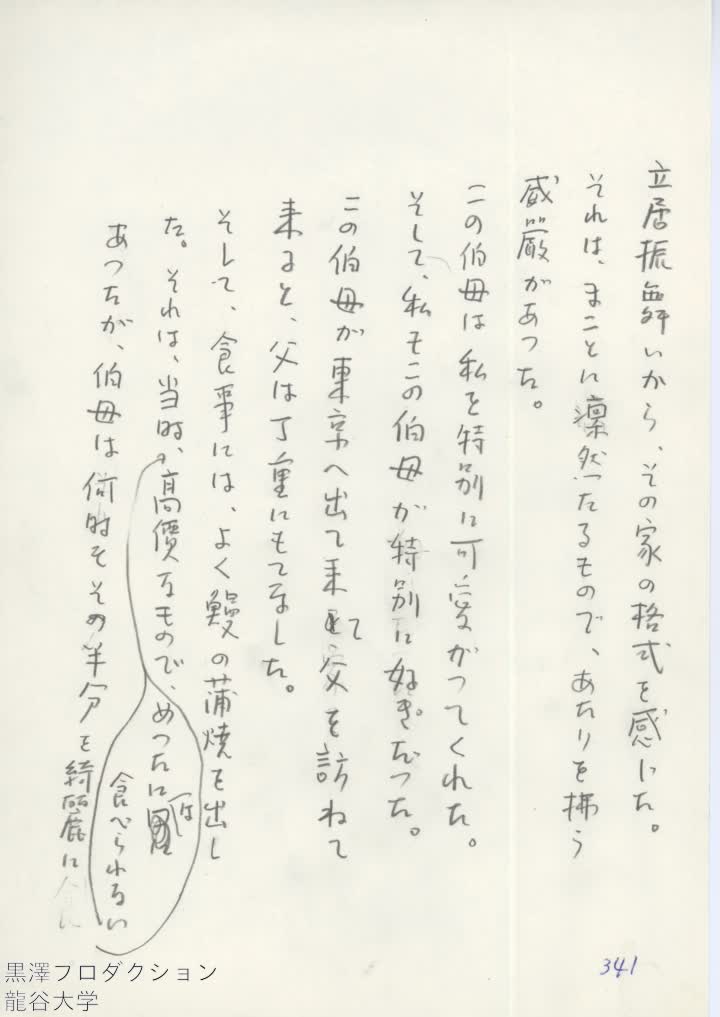 立居振舞いから、その家の格式を感じた。
それは、まことに凛然たるもので、あたりを拂う
威厳があった。
この伯母は私を特別に可愛がってくれた。
そして、私もこの伯母が特別に好きだった。
この伯母が東京へ出て来て父を訪ねて
来ると、父は丁重にもてなした。
そして、食事には、よく鰻の蒲焼を出し
た。それは、当時、高價なもので、めったには
食べられない
あったが、伯母は何時もその半分を綺麗に
341
黒澤プロダクション
龍谷大学